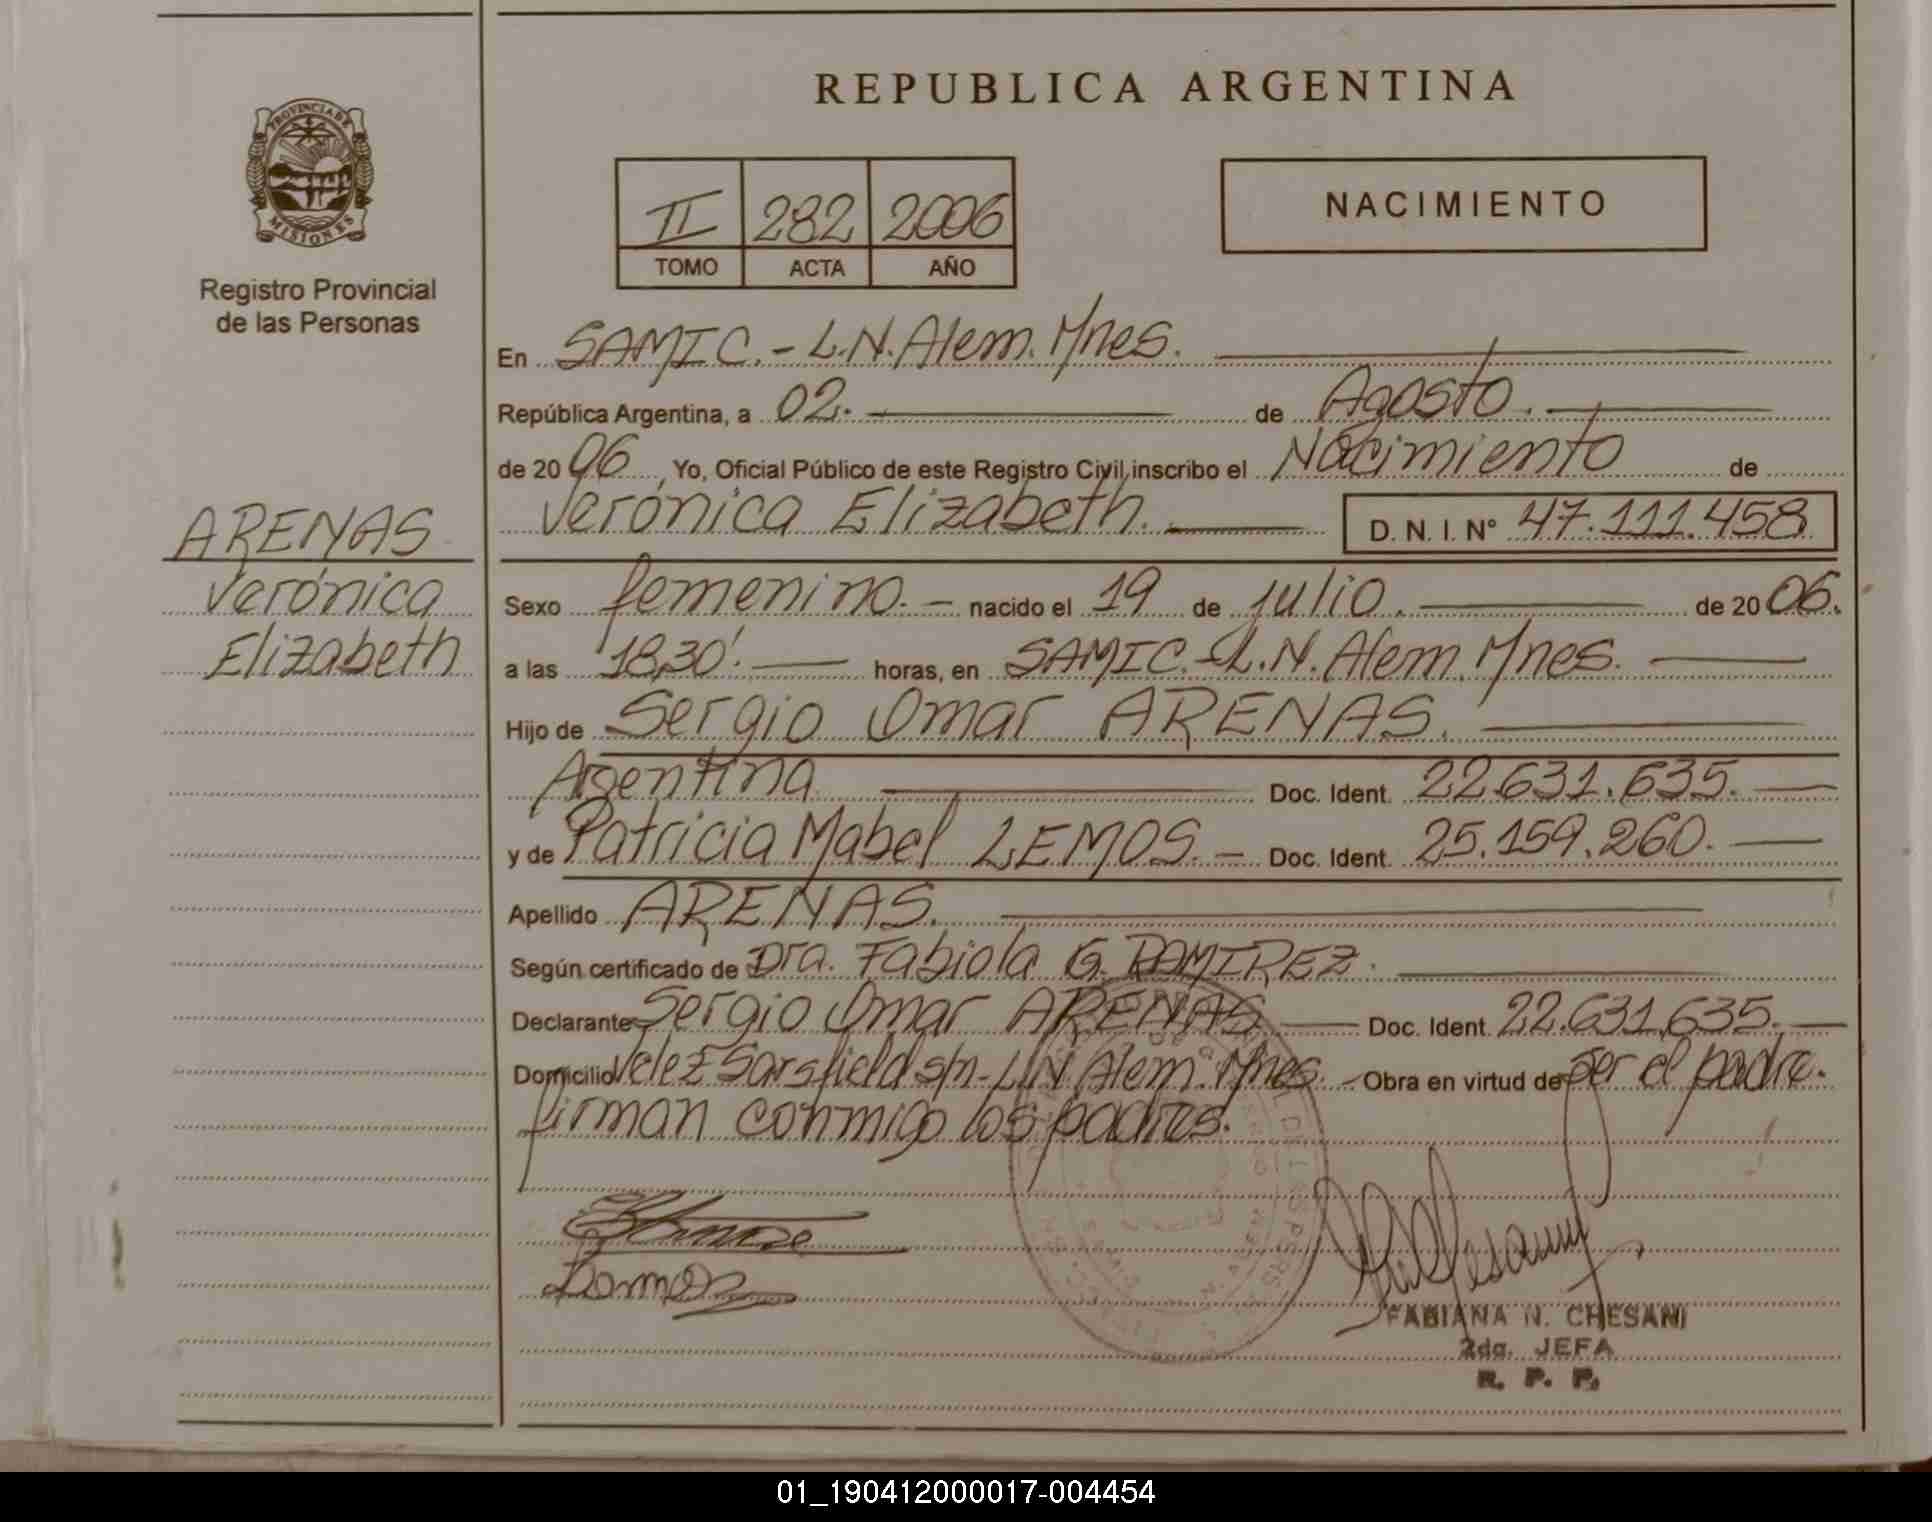 REPUBLICA ARGENTINA
PROVINCIA DE
MISIONES
Registro Provincial
de las Personas
II 282 2006
TOMO ACTA AÑO
NACIMIENTO
En SAMIC.- L.N.Alem. Mnes.
República Argentina, a 02. de Agosto.
de 2006, Yo, Oficial Público de este Registro Civil, inscribo el Nacimiento de
Verónica Elizabeth. D. N. I. Nº 47.111.458
ARENAS
Verónica
Elizabeth
Sexo femenino.- nacido el 19 de julio. de 2006.
a las 18,30'. horas, en SAMIC.-L.N.Alem. Mnes.
Hijo de Sergio Omar ARENAS.
Argentina Doc. Ident. 22.631.635.
y de Patricia Mabel LEMOS.- Doc. Ident. 25.159.260.
Apellido ARENAS.
Según certificado de Dra. Fabiola G. RAMIREZ.
Declarante Sergio Omar ARENAS Doc. Ident. 22.631.635.
Domicilio Velez Sarsfield s/n-L.N.Alem. Mnes. Obra en virtud de ser el padre.
firman conmigo los padres.
FABIANA N. CHESANI
2da. JEFA
R. P. P.
01_190412000017-004454